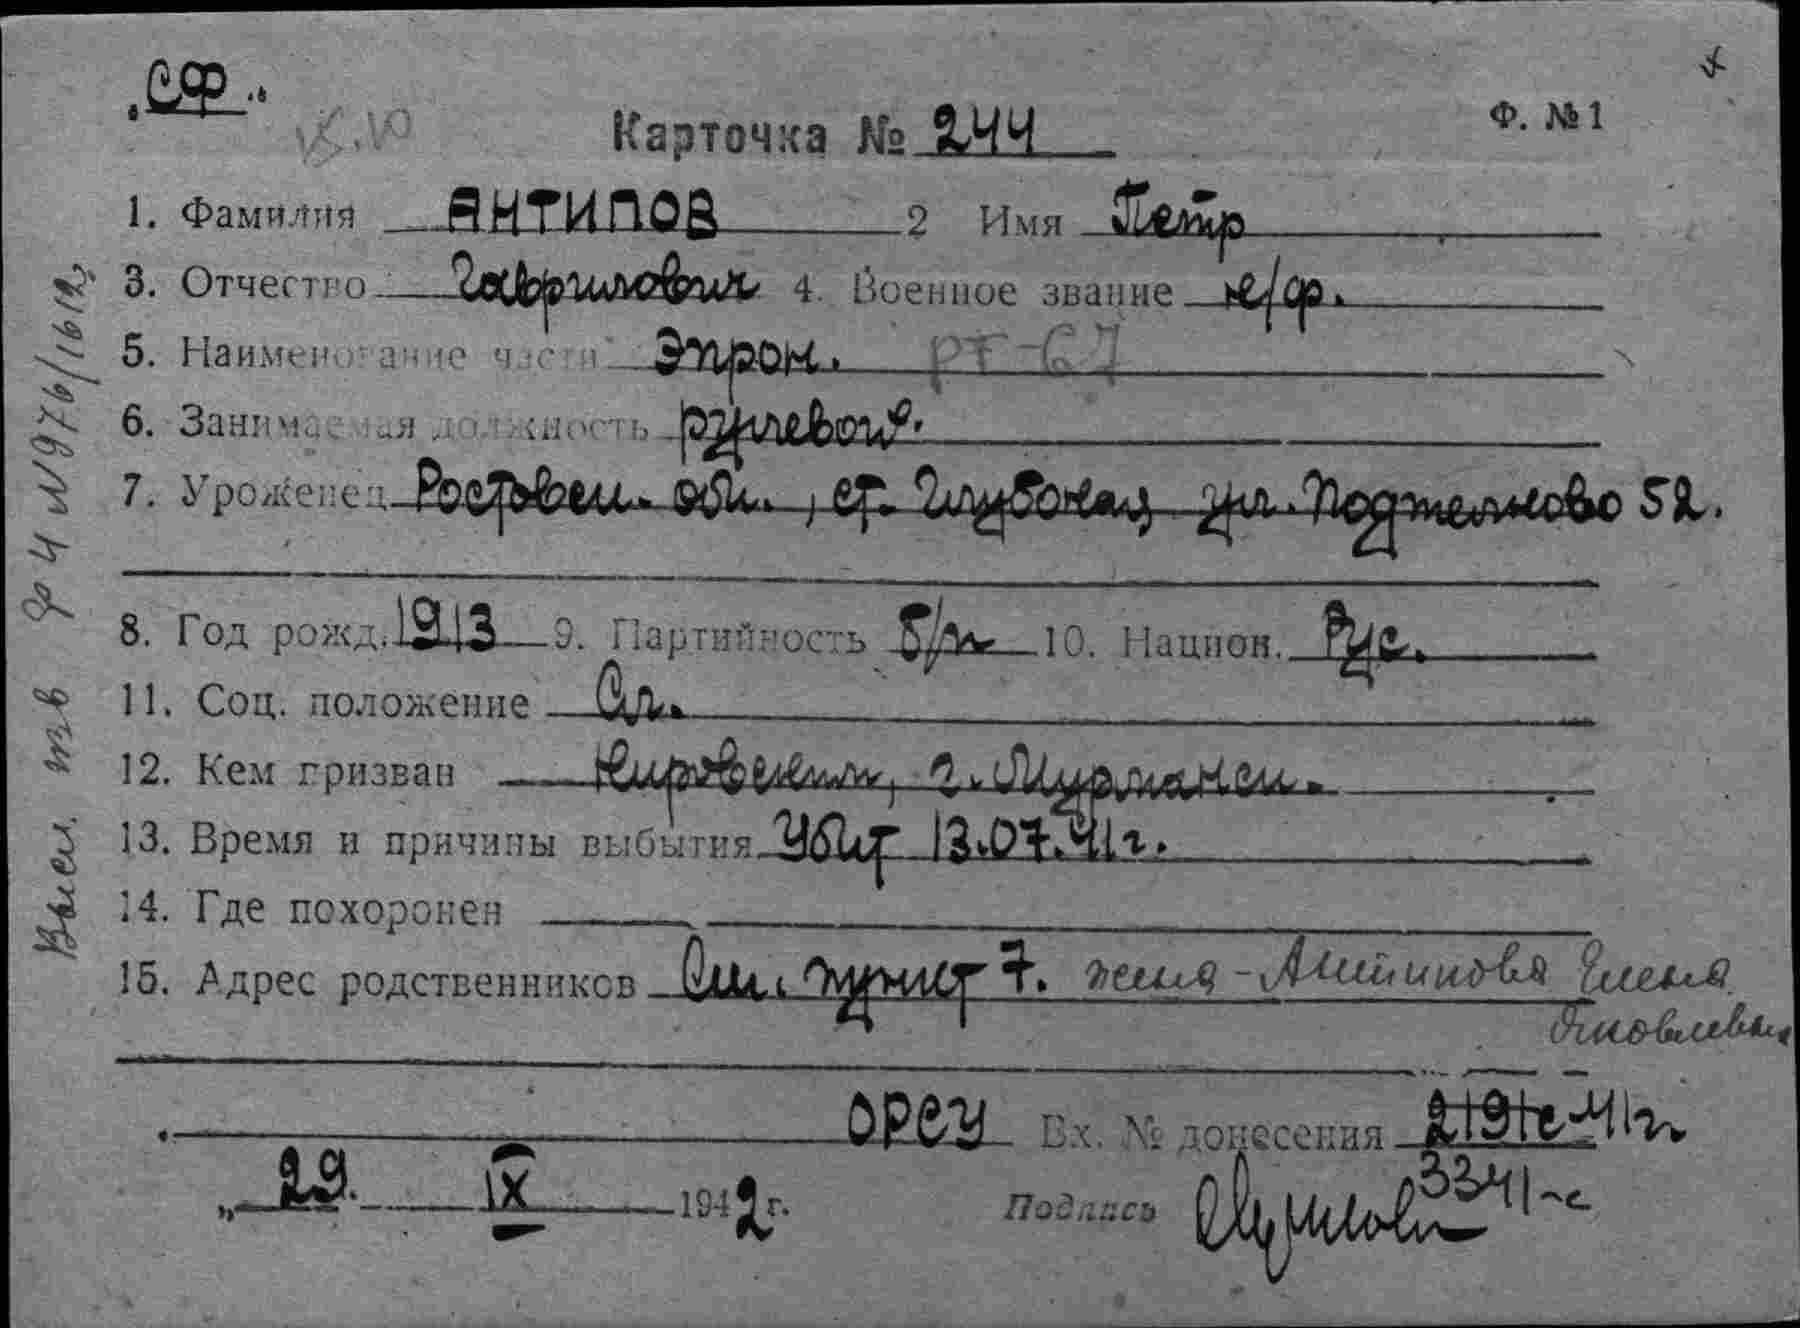 СФ.
Карточка № 244 Ф. №1
1. Фамилия АНТИПОВ 2 Имя Петр
3. Отчество Гаврилович 4. Военное звание к/ф.
5. Наименование части Эпрон. РТ-67
6. Занимаемая должность рулевой.
7. Уроженец Ростовск. обл., ст. Глубокая ул. Подтелково 52.
8. Год рожд. 1913 9. Партийность Б/п 10. Национ. Рус.
11. Соц. положение Сл.
12. Кем призван Кировским, г. Мурманск.
13. Время и причины выбытия Убит 13.07.41г.
14. Где похоронен
15. Адрес родственников См. пункт 7. жена - Антипова Елена
Яковлевна
ОРСУ Вх. № донесения 2191с-41г
„ 29. IX 1942г. Подпись 3341-с
Высл. тв ф 4 № 976/